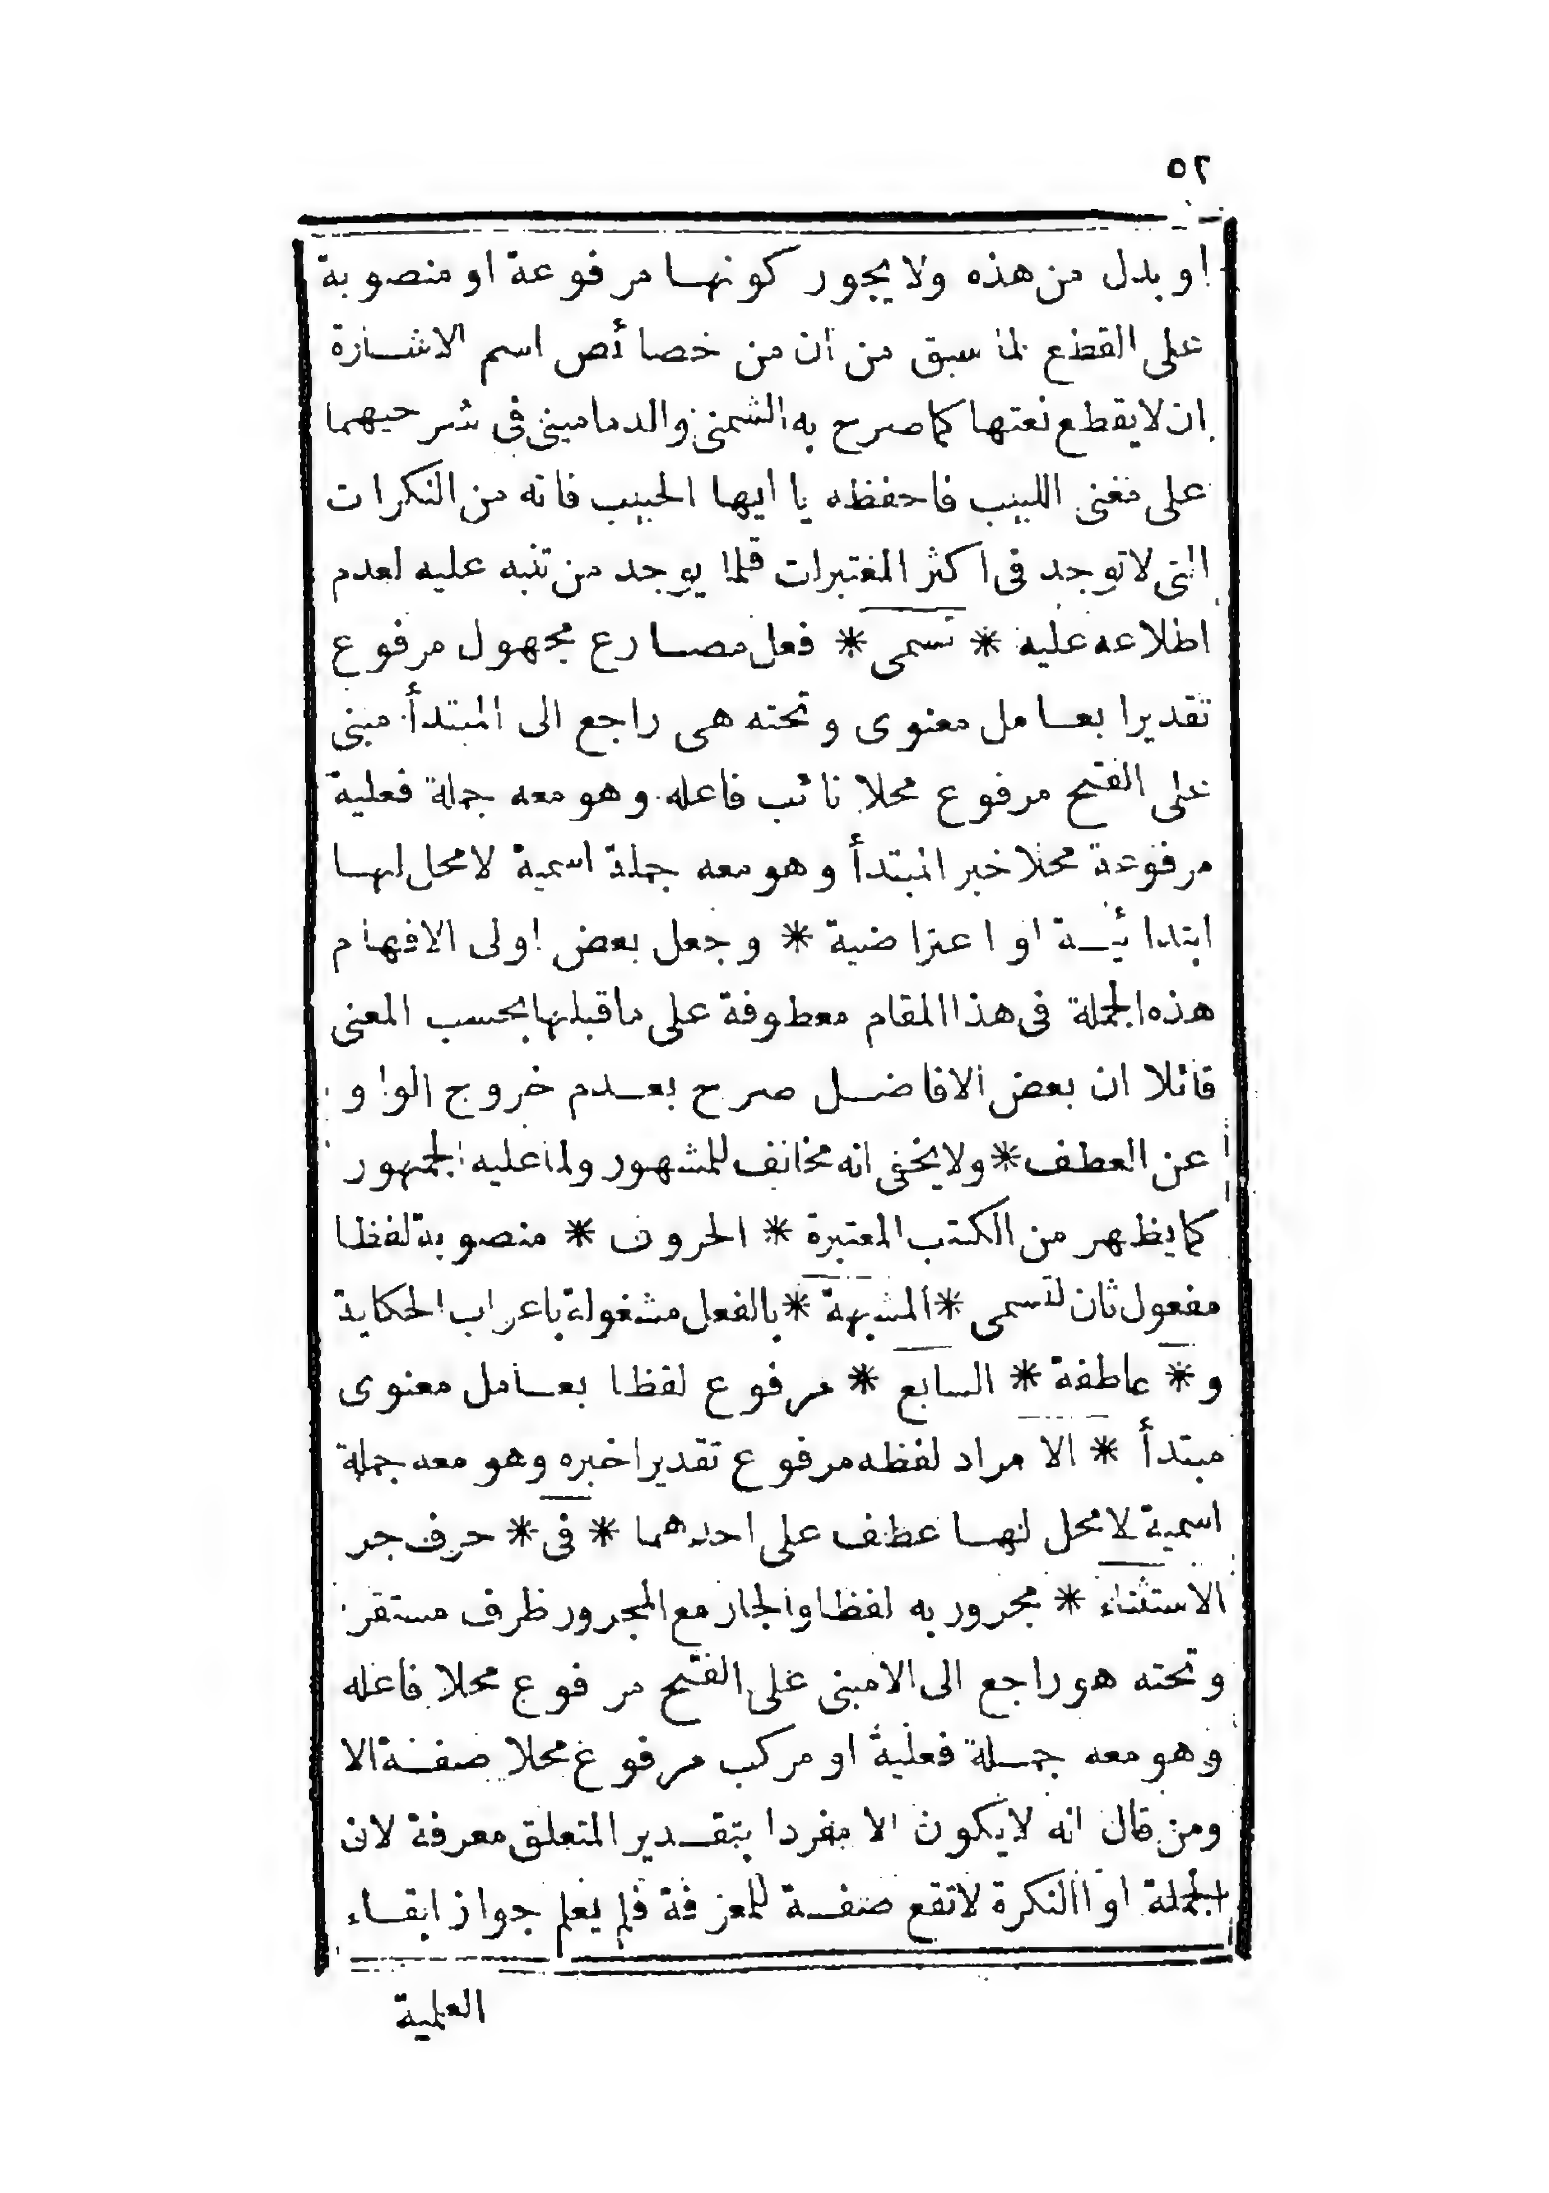 ٥٢
او بدل من هذه ولا يجوز كونها مرفوعة او منصوبة
على القطع لما سبق من ان من خصائص اسم الاشارة
ان لا يقطع نعتها كما صرح به الشمني والدماميني في شرحيهما
على مغني اللبيب فاحفظه يا ايها الحبيب فانه من النكرات
التي لا توجد في اكثر المعتبرات قلما يوجد من تنبه عليه لعدم
اطلاعه عليه * تسمى * فعل مضارع مجهول مرفوع
تقديرا بعامل معنوى وتحته هى راجع الى المبتدأ مبنى
على الفتح مرفوع محلا نائب فاعله وهو معه جملة فعلية
مرفوعة محلا خبر المبتدأ وهو معه جملة اسمية لا محل لها
ابتدائية او اعتراضية * وجعل بعض اولى الافهام
هذه الجملة فى هذا المقام معطوفة على ما قبلها بحسب المعنى
قائلا ان بعض الافاضل صرح بعدم خروج الواو
عن العطف * ولا يخفى انه مخالف للمشهور ولما عليه الجمهور
كما يظهر من الكتب المعتبرة * الحروف * منصوبة لفظا
مفعول ثان لتسمى * المشبهة * بالفعل مشغولة باعراب الحكاية
و * عاطفة * السابع * مرفوع لفظا بعامل معنوى
مبتدأ * الا مراد لفظه مرفوع تقديرا خبره وهو معه جملة
اسمية لا محل لها عطف على احدهما * فى * حرف جر
الاستثناء * مجرور به لفظا والجار مع المجرور ظرف مستقر
وتحته هو راجع الى الا مبنى على الفتح مرفوع محلا فاعله
وهو معه جملة فعلية او مركب مرفوع محلا صفة الا
ومن قال انه لا يكون الا مفردا بتقدير المتعلق معرفة لان
الجملة او النكرة لا تقع صفة للمعرفة فلم يعلم جواز ابقاء
العلمية